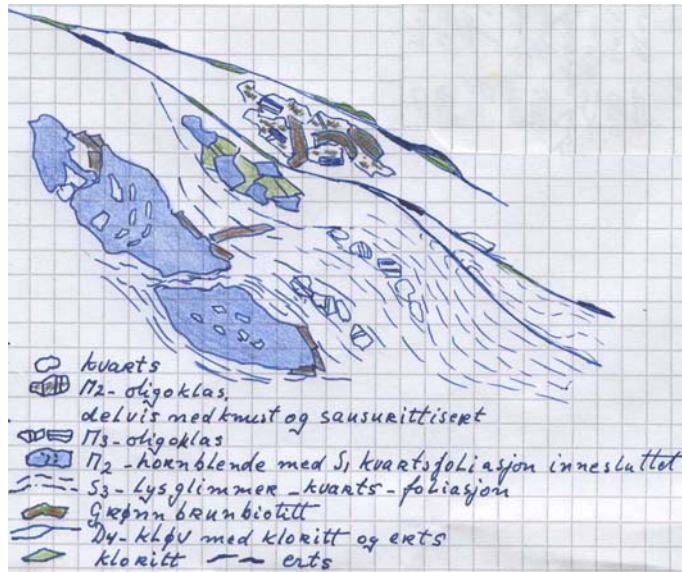 kvarts
M2-oligoklas,
delvis nedknust og sausurittisert
M3-oligoklas
M2-hornblende med S1 kvartsfoliasjon innesluttet
S3-Lysglimmer-kvarts-foliasjon
Grønn brunbiotitt
D4-kløv med kloritt og erts
kloritt erts